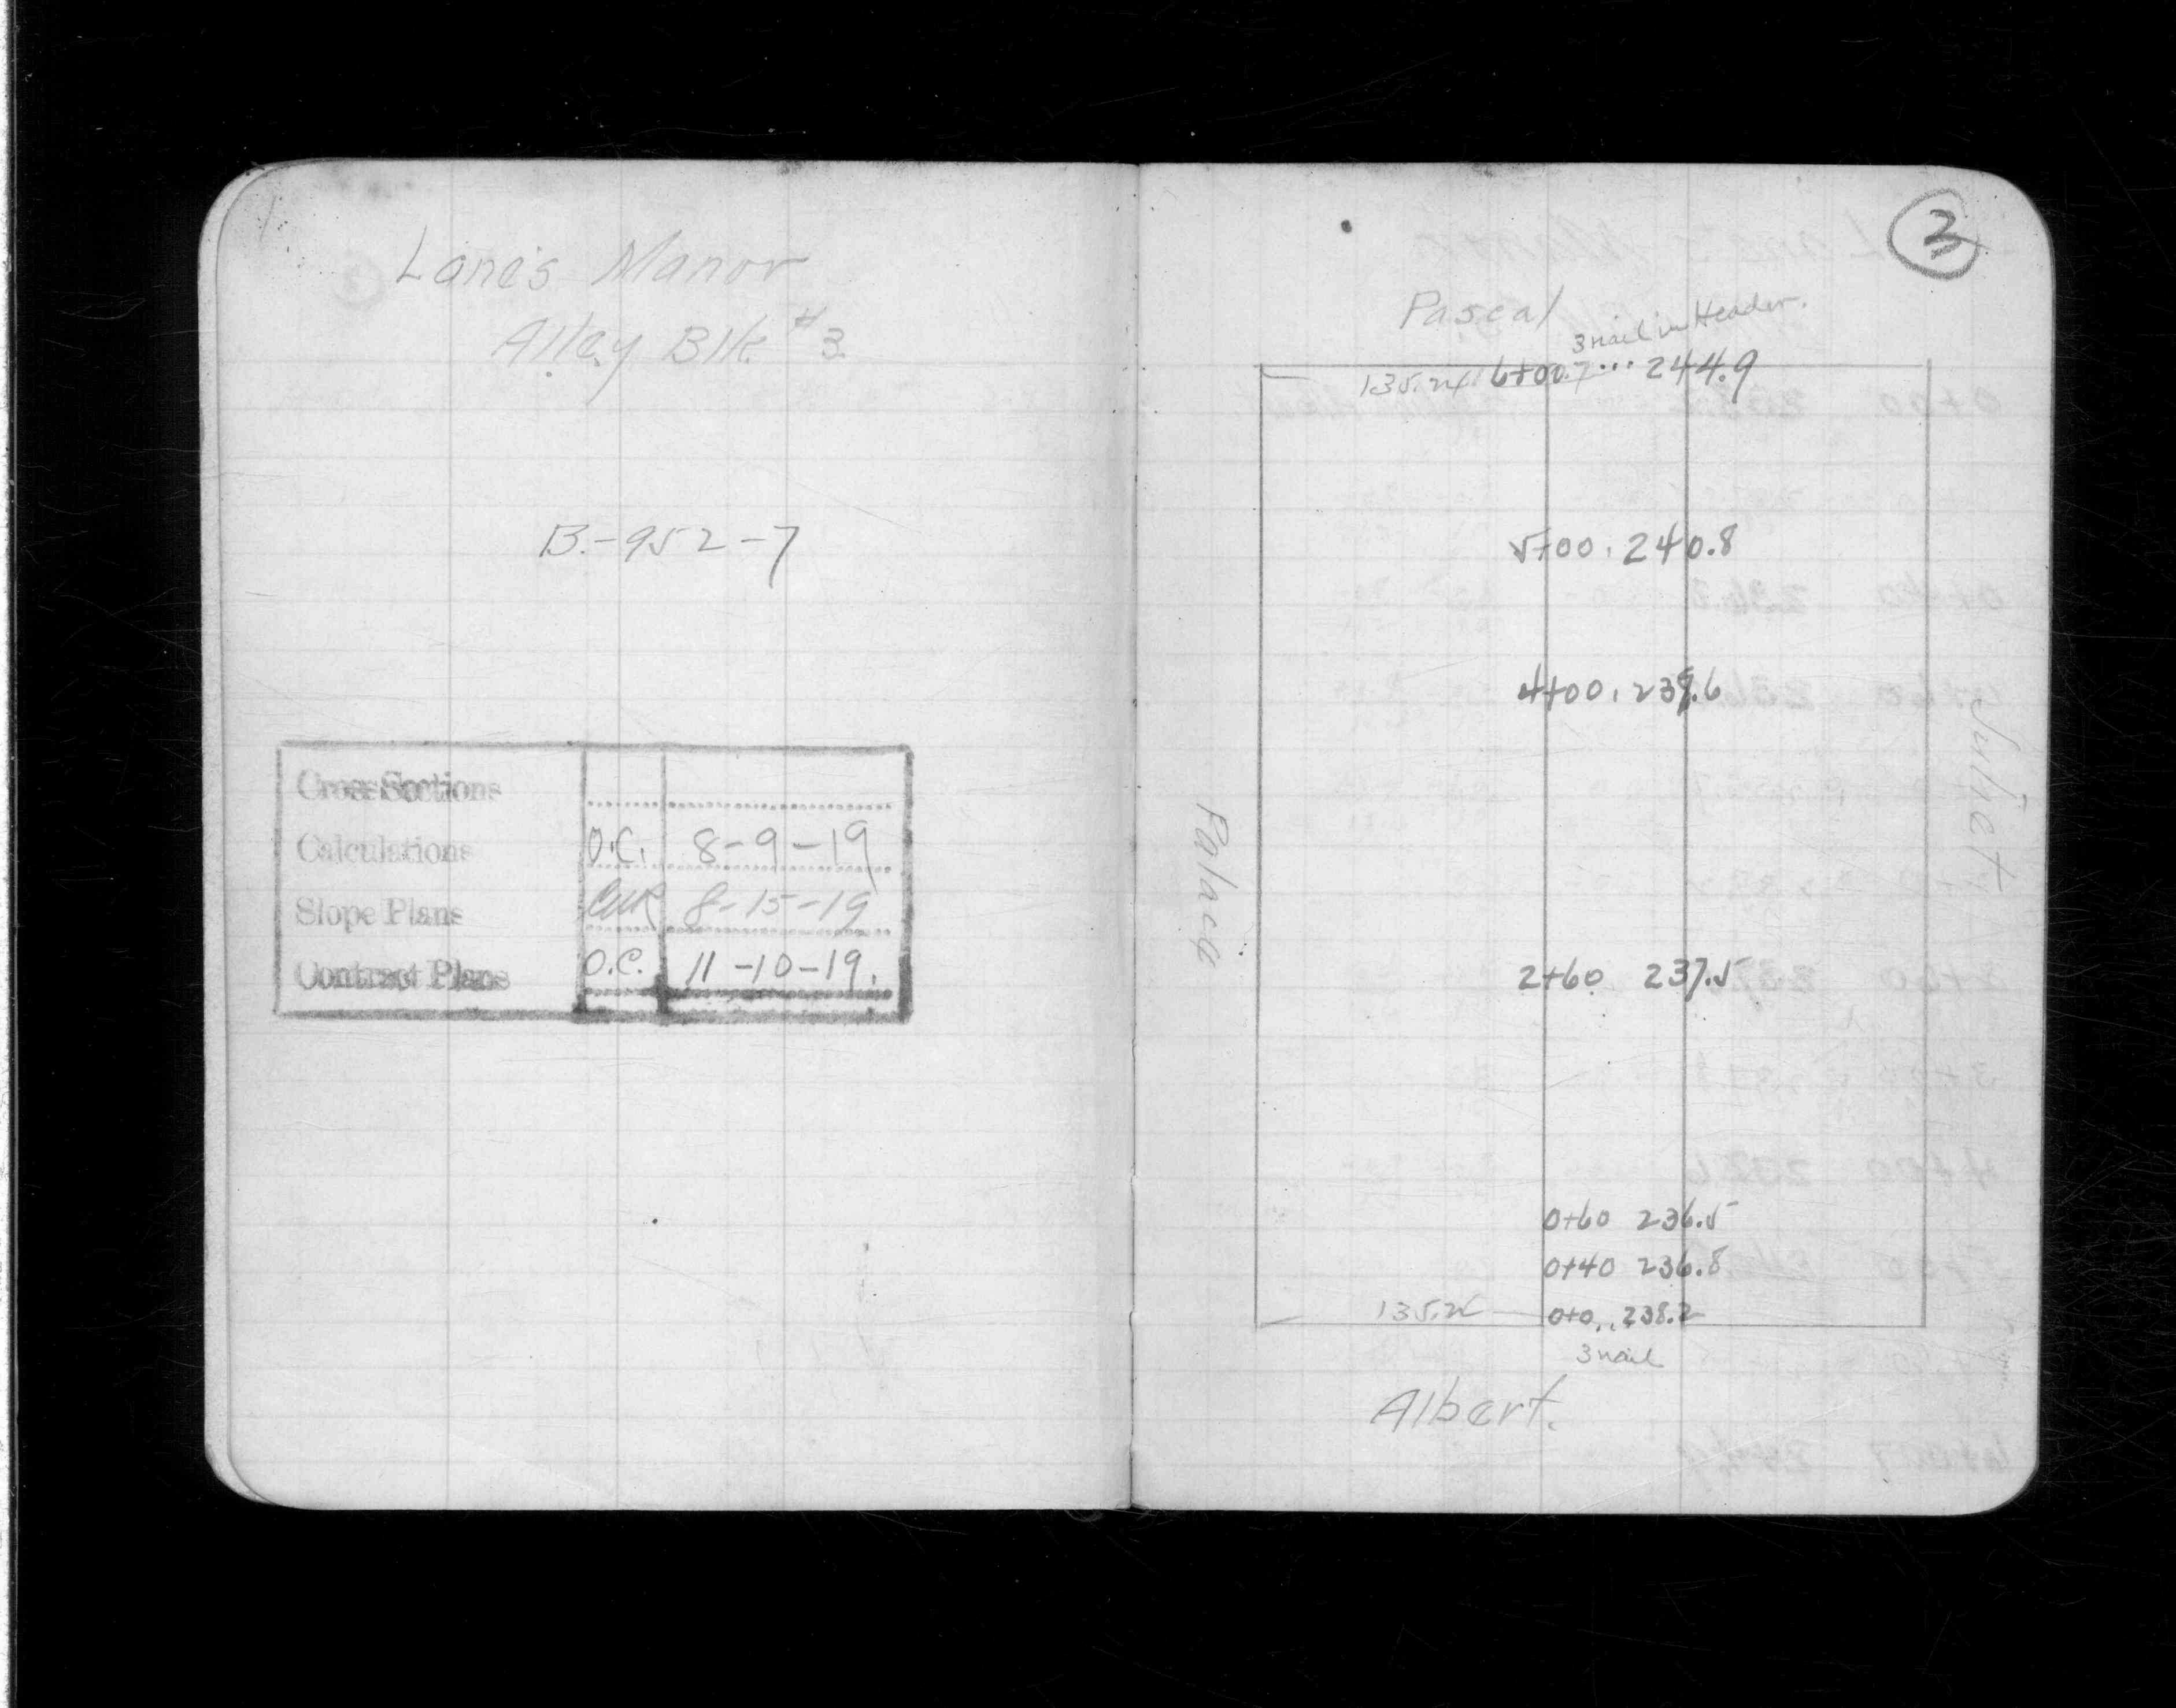 Lane's Manor
Alley Blk. #3.
B.-952-7
Cross Sections
Calculations O.C. 8-9-19
Slope Plans 8-15-19
Contract Plans O.C. 11-10-19.
3
Pascal
3 nail in Header.
6+00.7 ... 244.9
5+00. 240.8
4+00. 239.6
Juliet
Palace
2+60 237.5
0+60 236.5
0+40 236.8
0+0... 238.2
3 nail
Albert.